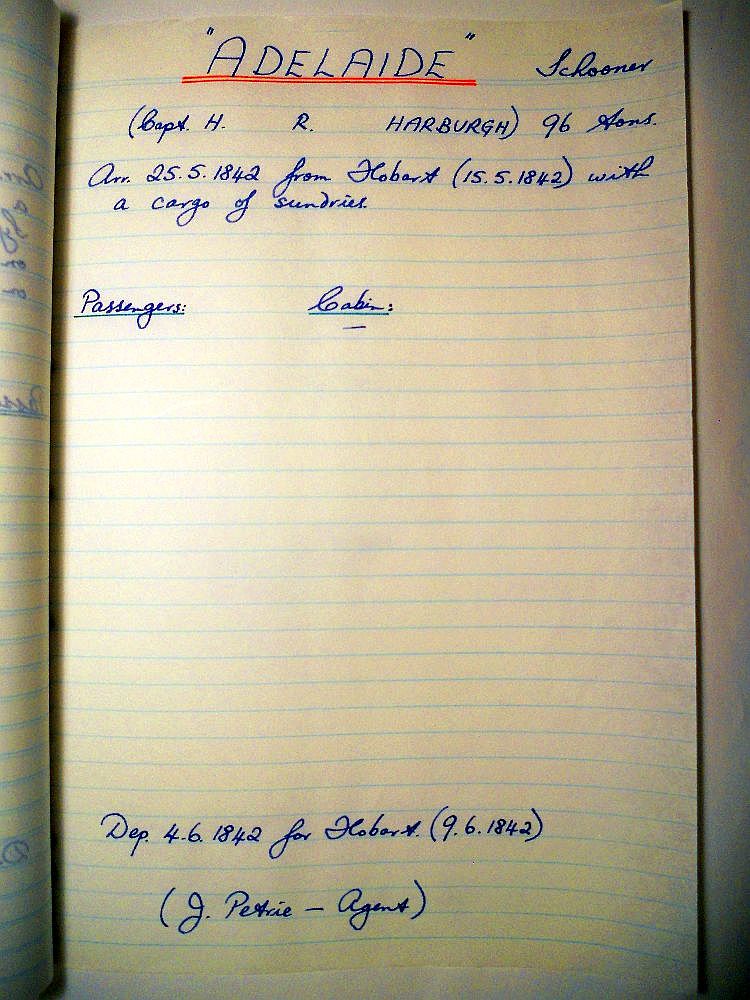 "ADELAIDE" Schooner
(Capt. H. R. HARBURGH) 96 tons.
Arr. 25.5.1842 from Hobart (15.5.1842) with
a cargo of sundries.
Passengers: Cabin:
—
Dep. 4.6.1842 for Hobart. (9.6.1842)
(J. Petrie – Agent)